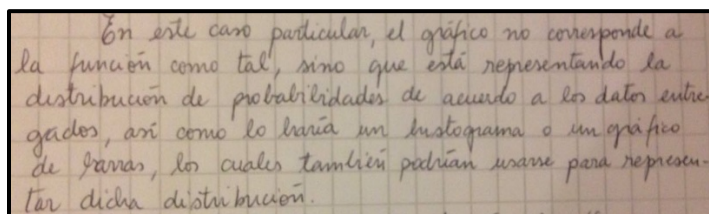 En este caso particular, el gráfico no corresponde a
la función como tal, sino que está representando la
distribución de probabilidades de acuerdo a los datos entre-
gados, así como lo haría un histograma o un gráfico
de barras, los cuales también podrían usarse para represen-
tar dicha distribución.